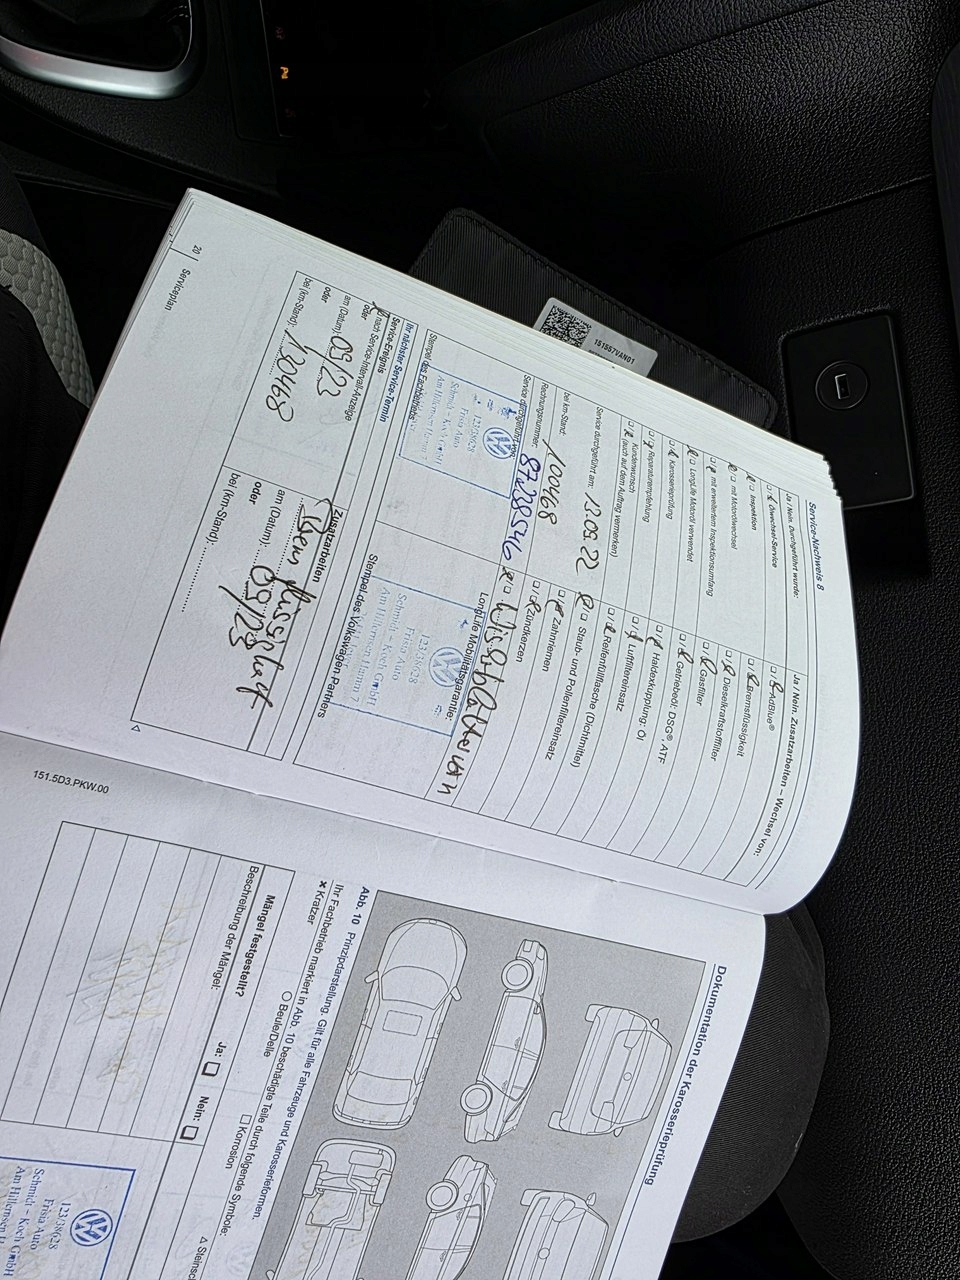 Service-Nachweis 8
Ja / Nein. Durchgeführt wurde:
Ölwechsel-Service
Inspektion
mit Motorölwechsel
mit erweitertem Inspektionsumfang
LongLife Motoröl verwendet
Karosserieprüfung
Reparaturempfehlung
Kundenwunsch
(auch auf dem Auftrag vermerken)
Service durchgeführt am: 13.09.22
bei km-Stand: 100468
Rechnungsnummer:
Service durchgeführt von:
Stempel des Fachbetriebs
123/38628
Frisia Auto
Schmidt - Koch GmbH
Ja / Nein. Zusatzarbeiten – Wechsel von:
AdBlue®
Bremsflüssigkeit
Dieselkraftstofffilter
Gasfilter
Getriebeöl: DSG®, ATF
Haldexkupplung: Öl
Luftfiltereinsatz
Reifenfüllflasche (Dichtmittel)
Staub- und Pollenfiltereinsatz
Zahnriemen
Zündkerzen
LongLife Mobilitätsgarantie:
123/38628
Frisia Auto
Schmidt - Koch GmbH
Stempel des Volkswagen Partners
Ihr nächster Service-Termin
Service-Ereignis
nach Service-Intervall-Anzeige
oder
am (Datum): 09/23
oder
bei (km-Stand): 130468
Zusatzarbeiten
am (Datum): 09/23
oder
bei (km-Stand):
20 | Serviceplan
151557VAN01
151.5D3.PKW.00
Dokumentation der Karosserieprüfung
Abb. 10 Prinzipdarstellung. Gilt für alle Fahrzeuge und Karosserieformen.
Ihr Fachbetrieb markiert in Abb. 10 beschädigte Teile durch folgende Symbole:
× Kratzer
○ Beule/Delle
□ Korrosion
Mängel festgestellt?
Ja: □
Nein: □
Beschreibung der Mängel:
123/38628
Frisia Auto
Schmidt - Koch GmbH